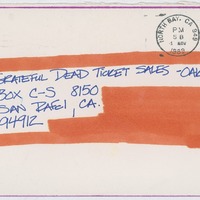 NORTH BAY, CA 949
PM
1 NOV
GRATEFUL DEAD TICKET SALES -OAK
BOX C-S 8150
SAN RAFEL, CA.
94912